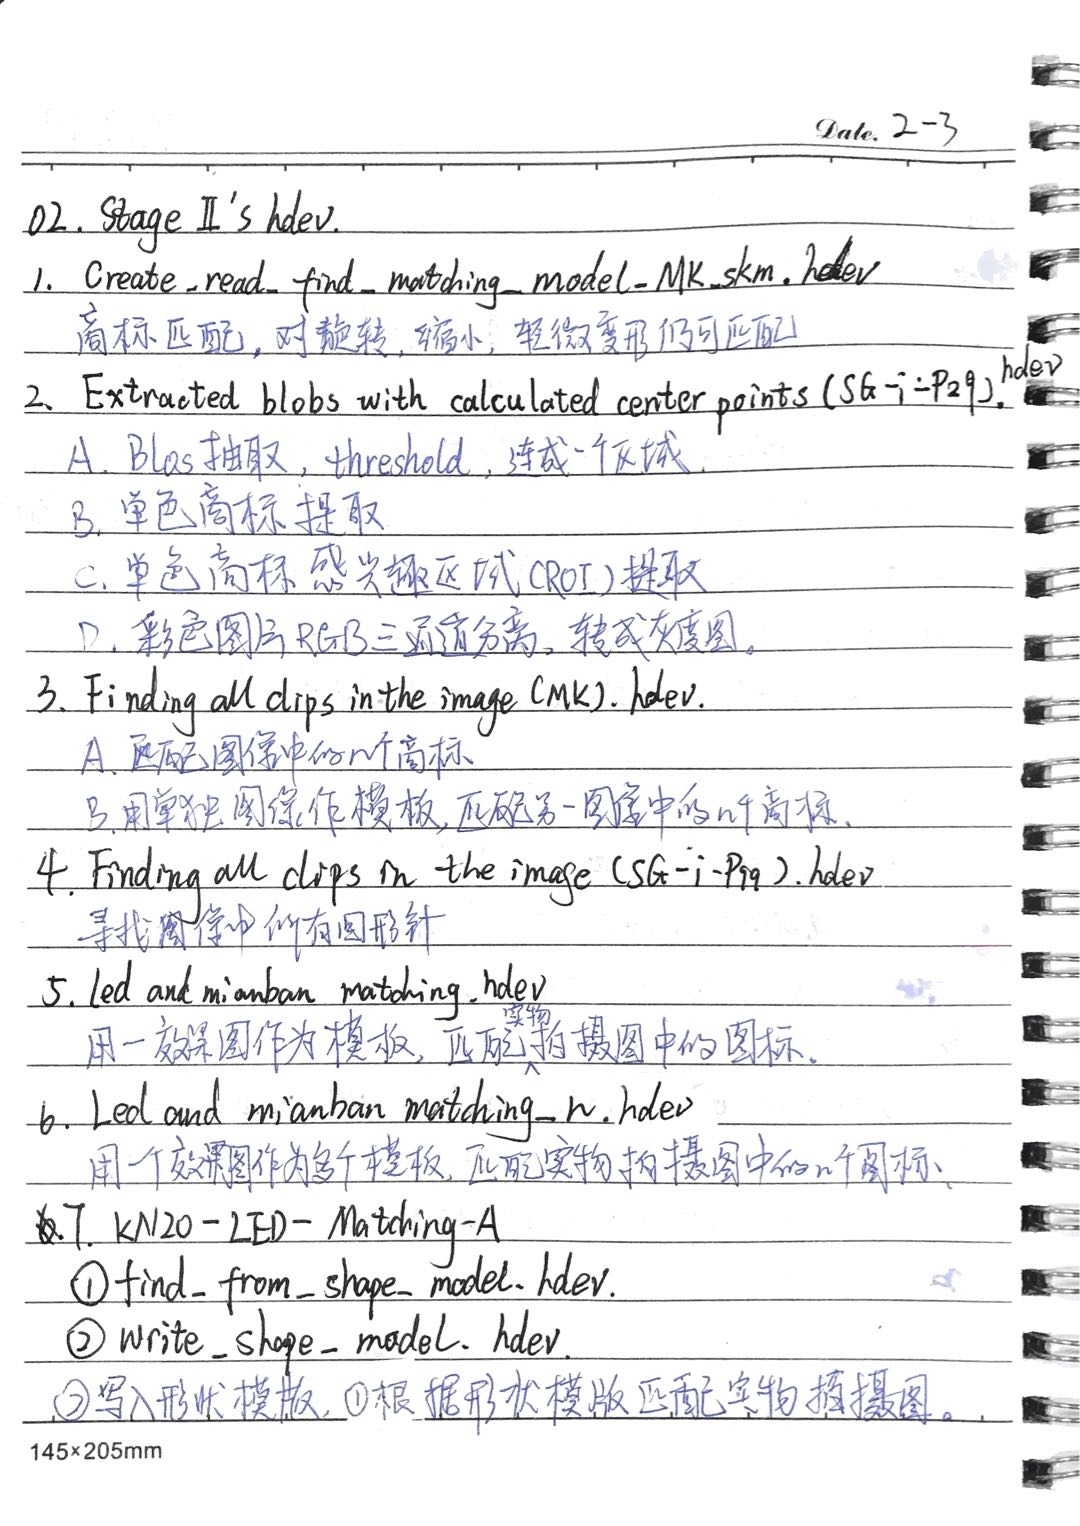 Date. 2-3
02. Stage II's hdev.
1. Create_read_find_matching_model_MK_skm.hdev
商标匹配，对旋转，缩小，轻微变形仍可匹配
2. Extracted blobs with calculated center points (SG-i-P29).hdev
A. Blos抽取，threshold，连成一个区域.
B. 单色商标提取
C. 单色商标感兴趣区域(ROI)提取
D. 彩色图片RGB三通道分离、转成灰度图。
3. Finding all clips in the image (MK).hdev.
A. 匹配图像中的n个商标
B. 用单独图像作模板，匹配另一图像中的n个商标.
4. Finding all clips in the image (SG-i-P19).hdev
寻找图像中所有回形针
5. Led and mianban matching.hdev
用一效果图作为模板，匹配实物拍摄图中的图标.
6. Led and mianban matching_n.hdev
用一个效果图作为多个模板，匹配实物拍摄图中的n个图标、
7. KN20-LED-Matching-A
① find_from_shape_model.hdev.
② write_shape_model.hdev.
②写入形状模版，①根据形状模版匹配实物拍摄图。
145×205mm